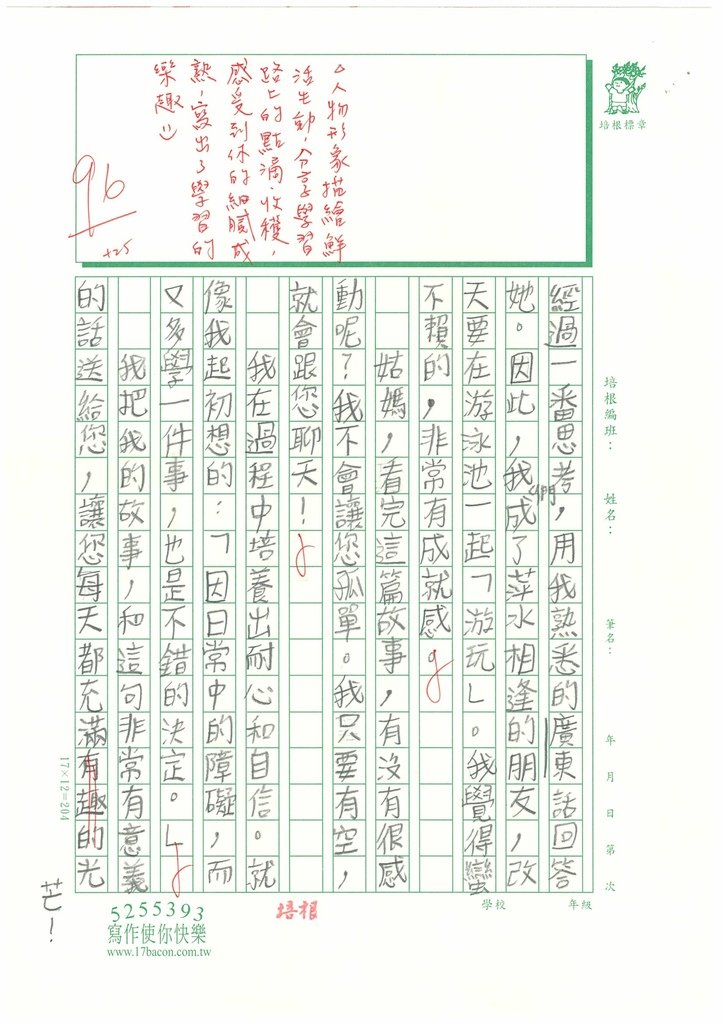 △人物形象描繪鮮
活生動，分享學習
路上的點滴、收穫，
感受到你的細膩成
熟，寫出了學習的
樂趣
96
+25
培根標章
培根編班：
姓名：
筆名：
年 月 日 第 次
學校
年級
經過一番思考，用我熟悉的廣東話回答
她。因此，我們成了萍水相逢的朋友，改
天要在游泳池一起「游玩」。我覺得蠻
不賴的，非常有成就感
姑媽，看完這篇故事，有沒有很感
動呢？我不會讓您孤單。我只要有空，
就會跟您聊天！
我在過程中培養出耐心和自信。就
像我起初想的：「因日常中的障礙，而
又多學一件事，也是不錯的決定。」
我把我的故事，和這句非常有意義
的話送給您，讓您每天都充滿有趣的光
芒！
17×12=204
5255393
寫作使你快樂
www.17bacon.com.tw
培根